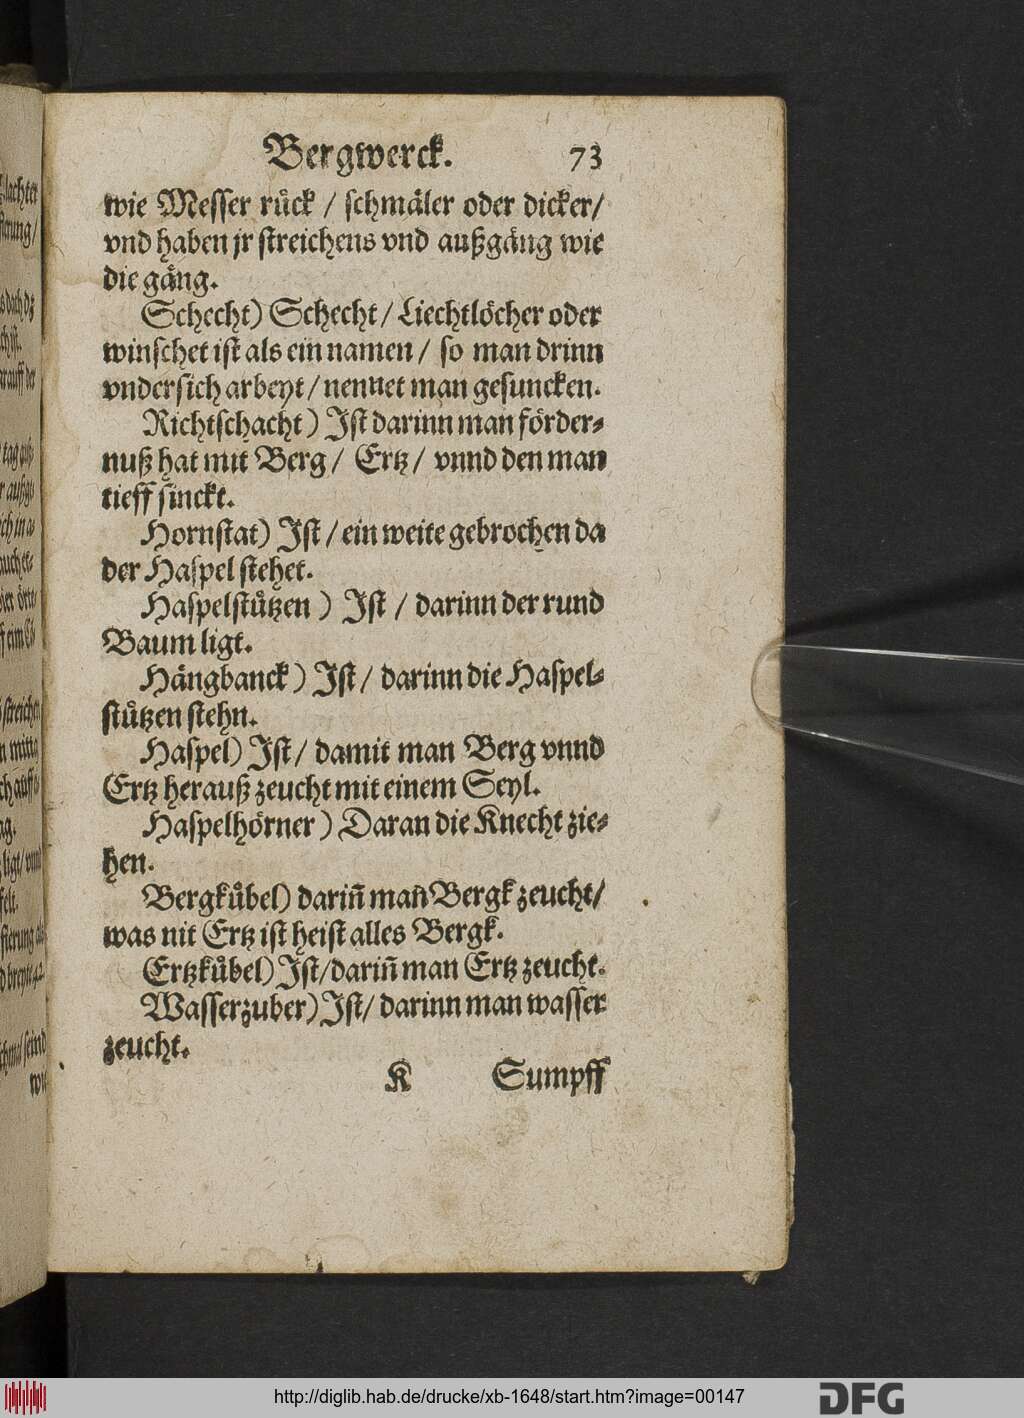 Bergwerck. 73
wie Messer růck / schmäler oder dicker/
vnd haben jr streichens vnd außgäng wie
die gäng.
Schecht) Schecht / Liechtlöcher oder
winschet ist als ein namen / so man drinn
vndersich arbeyt / nennet man gesuncken.
Richtschacht) Ist darinn man förder⸗
nuß hat mit Berg / Ertz / vnnd den man
tieff sinckt.
Hornstat) Ist / ein weite gebrochen da
der Haspel stehet.
Haspelstůtzen ) Ist / darinn der rund
Baum ligt.
Hängbanck) Ist / darinn die Haspel⸗
stůtzen stehn.
Haspel) Ist / damit man Berg vnnd
Ertz herauß zeucht mit einem Seyl.
Haspelhörner) Daran die Knecht zie⸗
hen.
Bergkůbel) dariñ mañ Bergk zeucht/
was nit Ertz ist heist alles Bergk.
Ertzkůbel) Ist/dariñ man Ertz zeucht.
Wasserzuber) Ist/ darinn man wasser
zeucht.
K Sumpff
http://diglib.hab.de/drucke/xb-1648/start.htm?image=00147
DFG